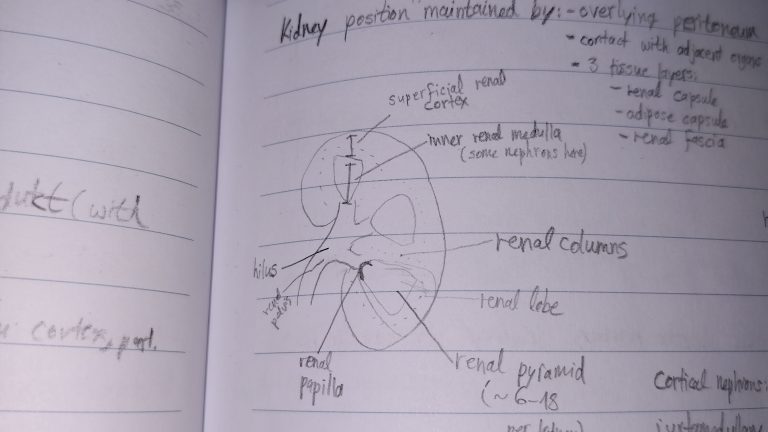 Kidney position maintained by: - overlying peritoneum
- contact with adjacent organs
- 3 tissue layers:
- renal capsule
- adipose capsule
- renal fascia
superficial renal
cortex
inner renal medulla
(some nephrons here)
(with
renal columns
hilus
renal
pelvis
renal lobe
cortex, part.
renal
papilla
renal pyramid
(~6-18
Cortical nephrons:
juxtamedullary